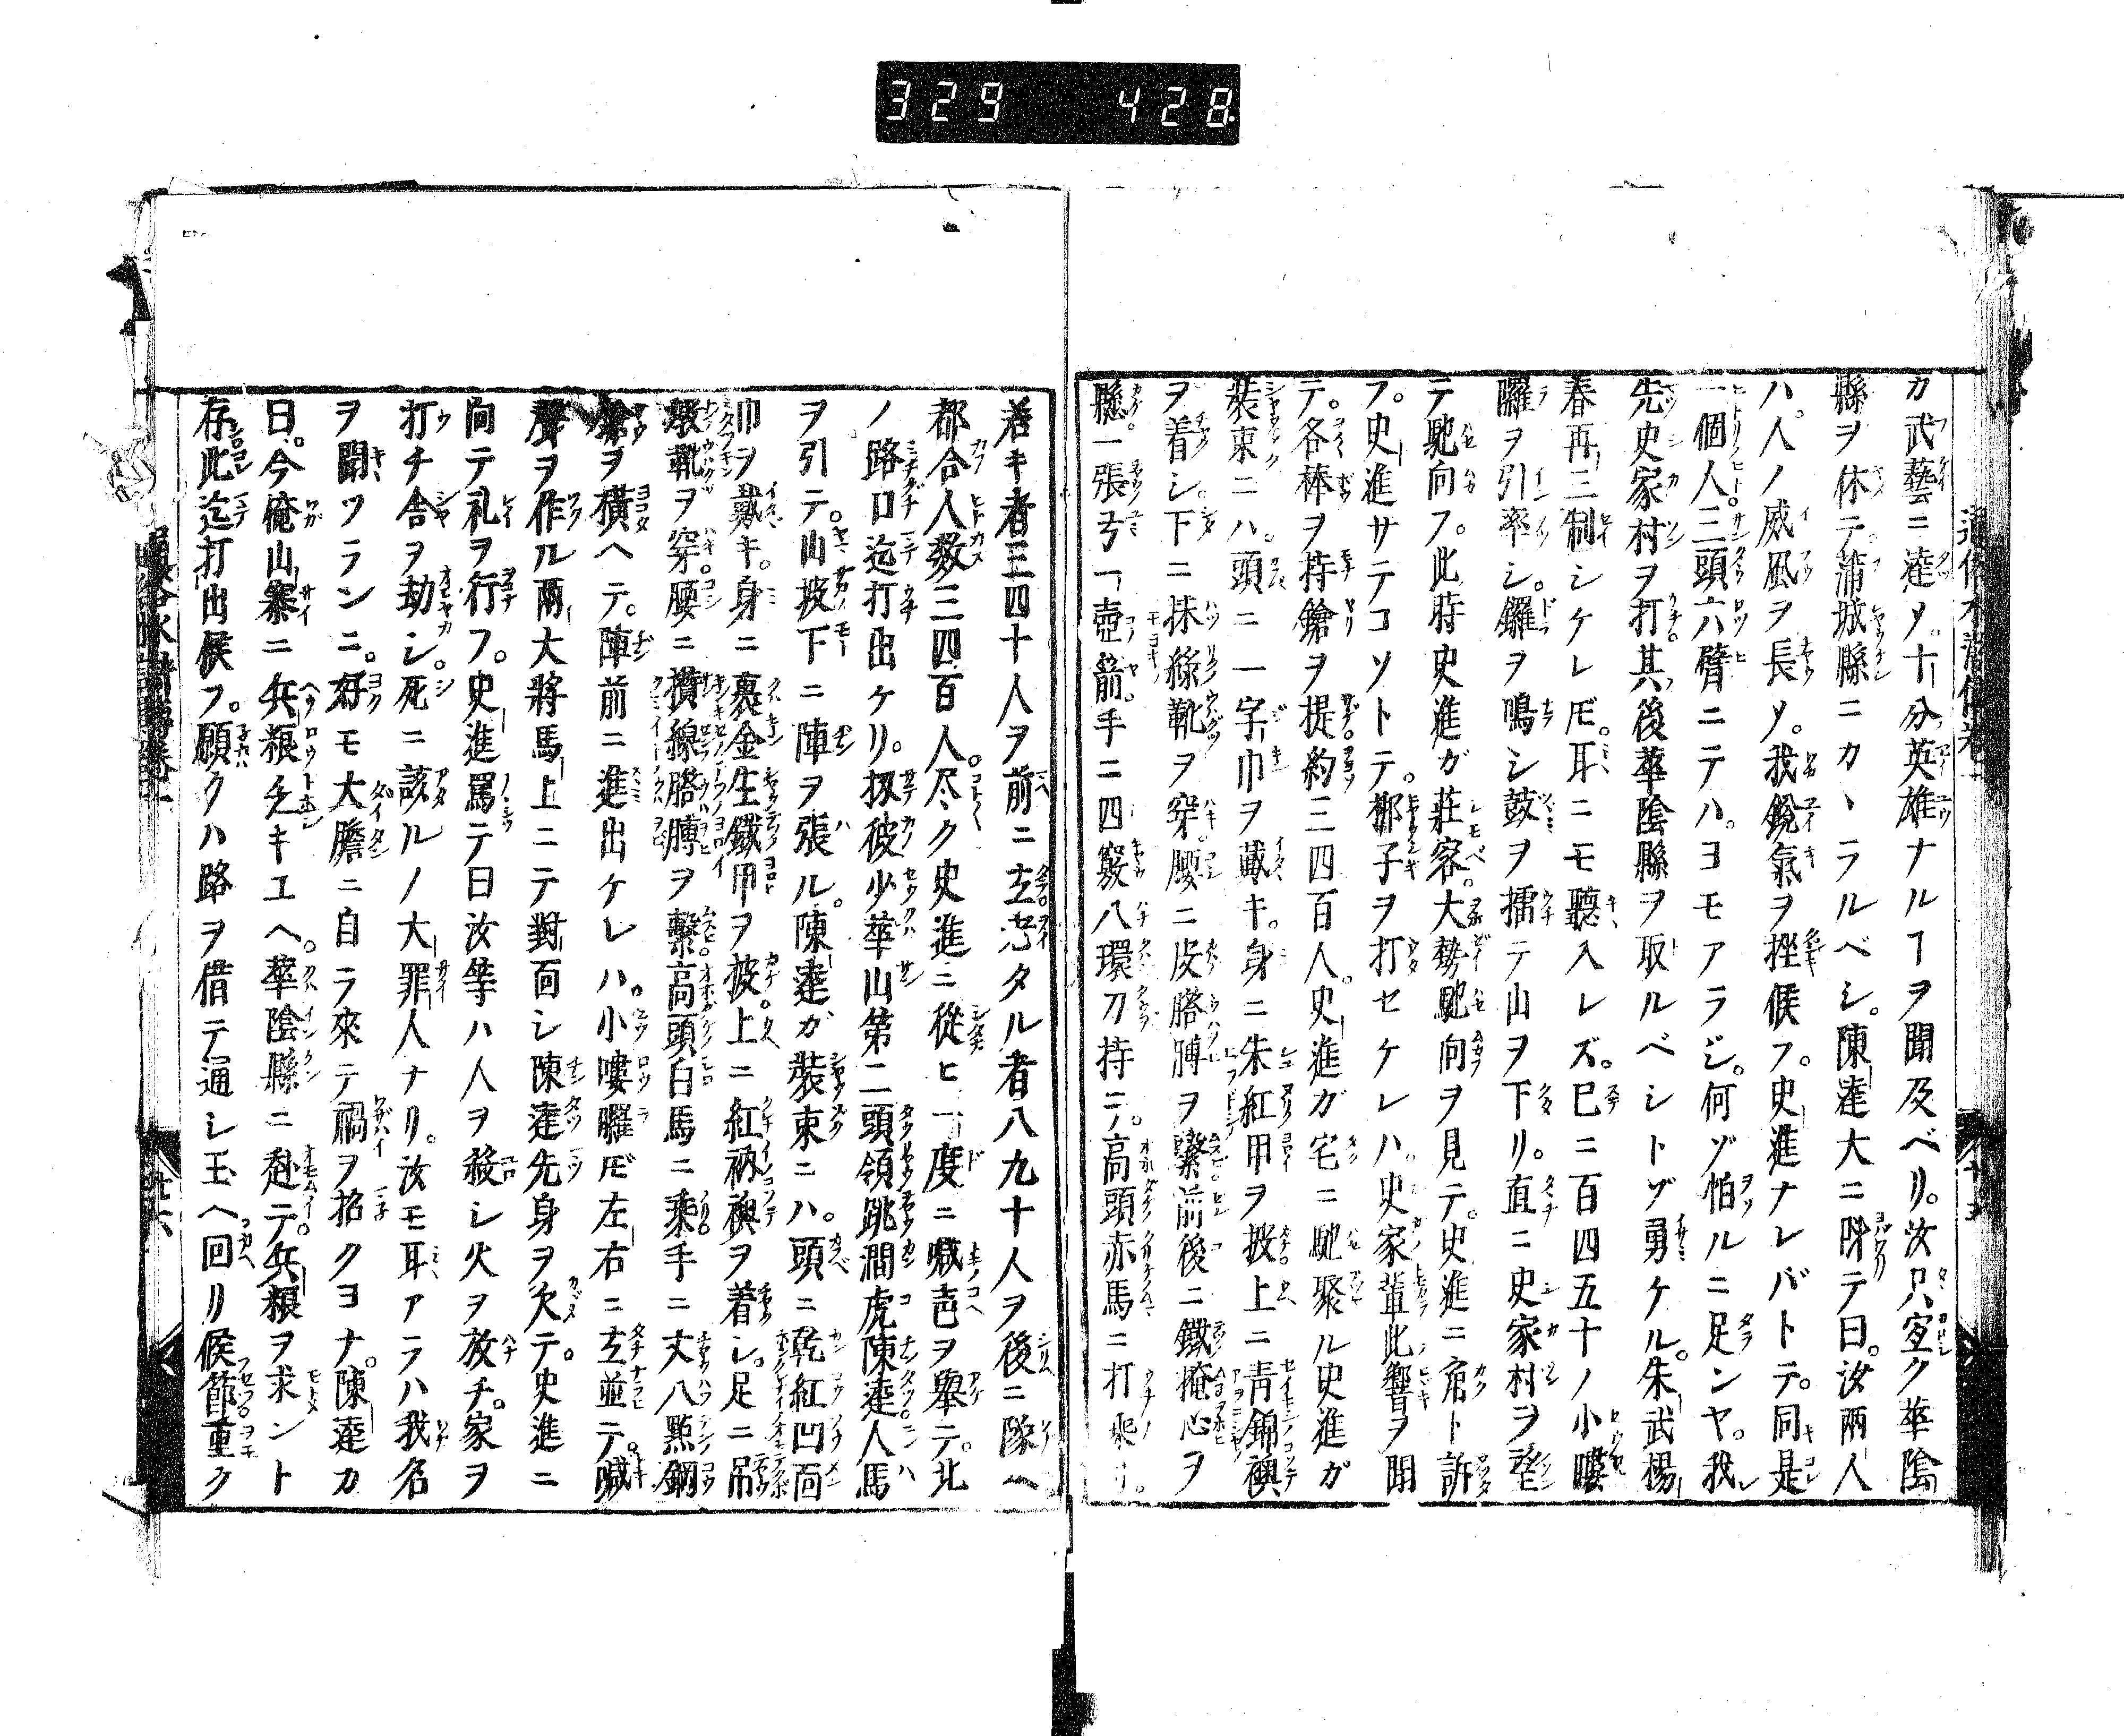 329 428
カ武藝ニ達ソ十分英雄ナルヿヲ聞及ベリ。汝只宜ク華陰
縣ヲ休テ。蒲城縣ニカヽラルベシ。陳達大ニ呀テ曰。汝兩人
ハ。人ノ威風ヲ長ソ。我鋭氣ヲ挫候フ。史進ナレバトテ。同是
一個人。三頭六臂ニテハ。ヨモアラジ。何ゾ怕ルニ足ンヤ。我
先史家村ヲ打。其後華陰縣ヲ取ルベシトゾ勇ケル。朱武楊
春再三制シケレ𪜈。耳ニモ聽入レズ。已ニ百四五十ノ小嘍
囉ヲ引率シ。鑼ヲ鳴シ鼓ヲ擂テ山ヲ下リ。直ニ史家村ヲ望
テ馳向フ。此時史進ガ莊客。大勢馳向ヲ見テ。史進ニ甭ト訴
フ。史進サテコソトテ。梆子ヲ打セケレハ。史家輩此響ヲ聞
テ。各棒ヲ持鎗ヲ提約三四百人。史進ガ宅ニ馳聚ル史進ガ
裝束ニハ。頭ニ一字巾ヲ戴キ。身ニ朱紅甲ヲ披上ニ青錦襖
ヲ着シ。下ニ抹緑靴ヲ穿。腰ニ皮胳膊ヲ繋前後ニ鐵掩心ヲ
懸。一張弓一壺箭。手ニ四竅八環刀持ニ。高頭赤馬ニ打乘リ。
若キ者三四十人ヲ前ニ立老タル者八九十人ヲ後ニ隊ヘ
都合人数三四百人。尽ク史進ニ從ヒ一度ニ喊声ヲ擧テ。北
ノ路口迄打出ケリ。扨彼少華山第二頭領跳澗虎陳達人馬
ヲ引テ。山披下ニ陣ヲ張ル。陳達ガ裝束ニハ。頭ニ乾紅凹面
巾ヲ戴キ。身ニ裹金生鐵甲ヲ披。上ニ紅衲襖ヲ着シ。足ニ吊
墩靴ヲ穿。腰ニ攢線胳膊ヲ繋。高頭白馬ニ乘手ニ丈八點鋼
鎗ヲ横ヘテ。陣前ニ進出ケレハ。小嘍囉𪜈左右ニ立並テ。喊
聲ヲ作ル兩大將馬上ニテ對面シ陳達先身ヲ欠テ。史進ニ
向テ礼ヲ行フ。史進罵テ曰汝等ハ人ヲ殺シ火ヲ放チ。家ヲ
打チ舎ヲ劫シ。死ニ該ルノ大罪人ナリ。汝モ耳アラハ我名
ヲ聞ツランニ。好モ大膽ニ自ラ來テ禍ヲ招クヨナ。陳達カ
曰。今俺山寨ニ兵粮乏キユヘ。華陰縣ニ赴テ。兵粮ヲ求ント
存此迄打出候フ。願クハ路ヲ借テ通シ玉ヘ回リ候節重ク